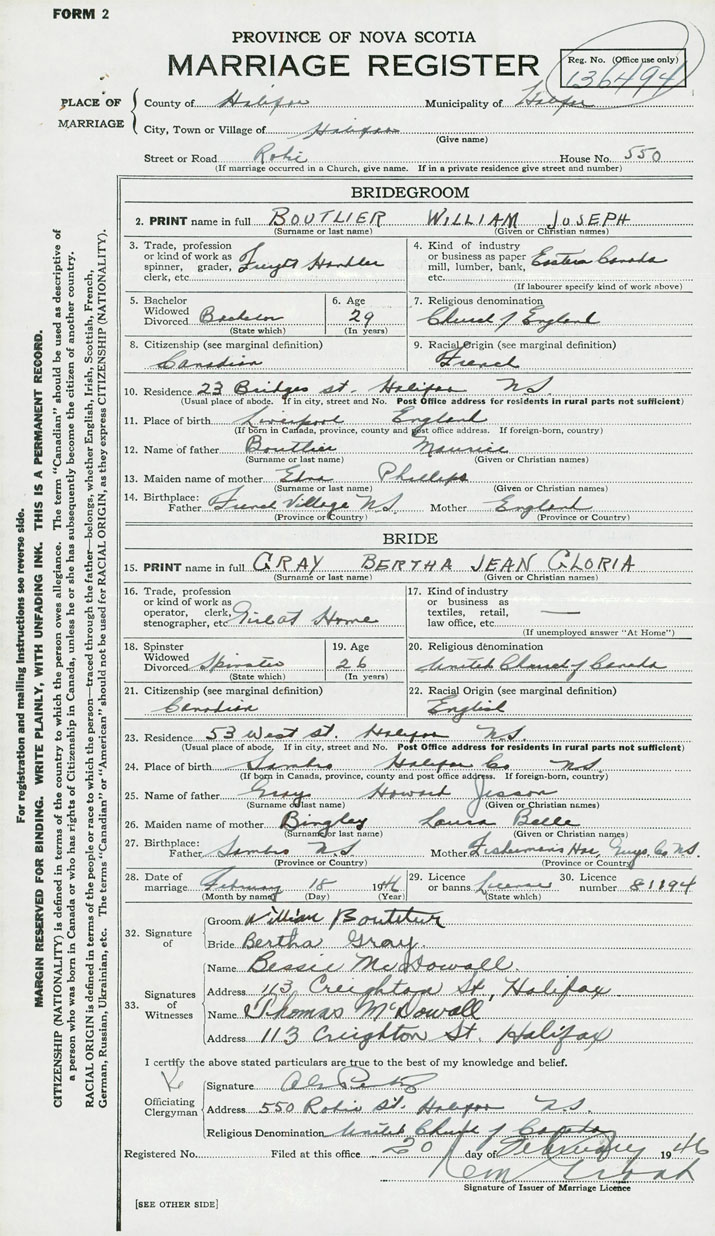 FORM 2
PROVINCE OF NOVA SCOTIA
MARRIAGE REGISTER
Reg. No. (Office use only)
136494
PLACE OF MARRIAGE
County of Halifax Municipality of Halifax
City, Town or Village of Halifax
(Give name)
Street or Road Robie House No. 550
(If marriage occurred in a Church, give name. If in a private residence give street and number)
BRIDEGROOM
2. PRINT name in full BOUTLIER WILLIAM JOSEPH
(Surname or last name) (Given or Christian names)
3. Trade, profession or kind of work as spinner, grader, clerk, etc. Freight Handler
4. Kind of industry or business as paper mill, lumber, bank, etc. Eastern Canada
(If labourer specify kind of work above)
5. Bachelor Widowed Divorced Bachelor
(State which)
6. Age 29
(In years)
7. Religious denomination
Church of England
8. Citizenship (see marginal definition)
Canadian
9. Racial Origin (see marginal definition)
French
10. Residence 23 Bridges st. Halifax N.S.
(Usual place of abode. If in city, street and No. Post Office address for residents in rural parts not sufficient)
11. Place of birth Liverpool England
(If born in Canada, province, county and post office address. If foreign-born, country)
12. Name of father Boutlier Maurice
(Surname or last name) (Given or Christian names)
13. Maiden name of mother Edna Phillips
(Surname or last name) (Given or Christian names)
14. Birthplace: Father French Village N.S. Mother England
(Province or Country) (Province or Country)
BRIDE
15. PRINT name in full GRAY BERTHA JEAN GLORIA
(Surname or last name) (Given or Christian names)
16. Trade, profession or kind of work as operator, clerk, stenographer, etc. Girl at Home
17. Kind of industry or business as textiles, retail, law office, etc. —
(If unemployed answer "At Home")
18. Spinster Widowed Divorced Spinster
(State which)
19. Age 26
(In years)
20. Religious denomination
United Church of Canada
21. Citizenship (see marginal definition)
Canadian
22. Racial Origin (see marginal definition)
English
23. Residence 53 West st. Halifax N.S.
(Usual place of abode. If in city, street and No. Post Office address for residents in rural parts not sufficient)
24. Place of birth Sambro Halifax Co N.S.
(If born in Canada, province, county and post office address. If foreign-born, country)
25. Name of father Gray Howard
(Surname or last name) (Given or Christian names)
26. Maiden name of mother Bingley Laura Belle
(Surname or last name) (Given or Christian names)
27. Birthplace: Father Sambro N.S. Mother Fisherman's Har, Guys. Co N.S.
(Province or Country) (Province or Country)
28. Date of marriage February 18 1946
(Month by name) (Day) (Year)
29. Licence or banns License
(State which)
30. Licence number 81194
32. Signature of
Groom William Boutlier
Bride Bertha Gray.
33. Signatures of Witnesses
Name Bessie McDowall.
Address 113 Creighton St, Halifax
Name Thomas McDowall
Address 113 Creighton St. Halifax
I certify the above stated particulars are true to the best of my knowledge and belief.
Officiating Clergyman
Signature
Address 550 Robie st. Halifax N.S.
Religious Denomination United Church of Canada
Registered No. Filed at this office 20 day of February 1946
Signature of Issuer of Marriage Licence
[SEE OTHER SIDE]
For registration and mailing instructions see reverse side.
MARGIN RESERVED FOR BINDING. WRITE PLAINLY, WITH UNFADING INK. THIS IS A PERMANENT RECORD.
CITIZENSHIP (NATIONALITY) is defined in terms of the country to which the person owes allegiance. The term "Canadian" should be used as descriptive of
a person who was born in Canada or who has rights of Citizenship in Canada, unless he or she has subsequently become the citizen of another country.
RACIAL ORIGIN is defined in terms of the people or race to which the person—traced through the father—belongs, whether English, Irish, Scottish, French,
German, Russian, Ukrainian, etc. The terms "Canadian" or "American" should not be used for RACIAL ORIGIN, as they express CITIZENSHIP (NATIONALITY).